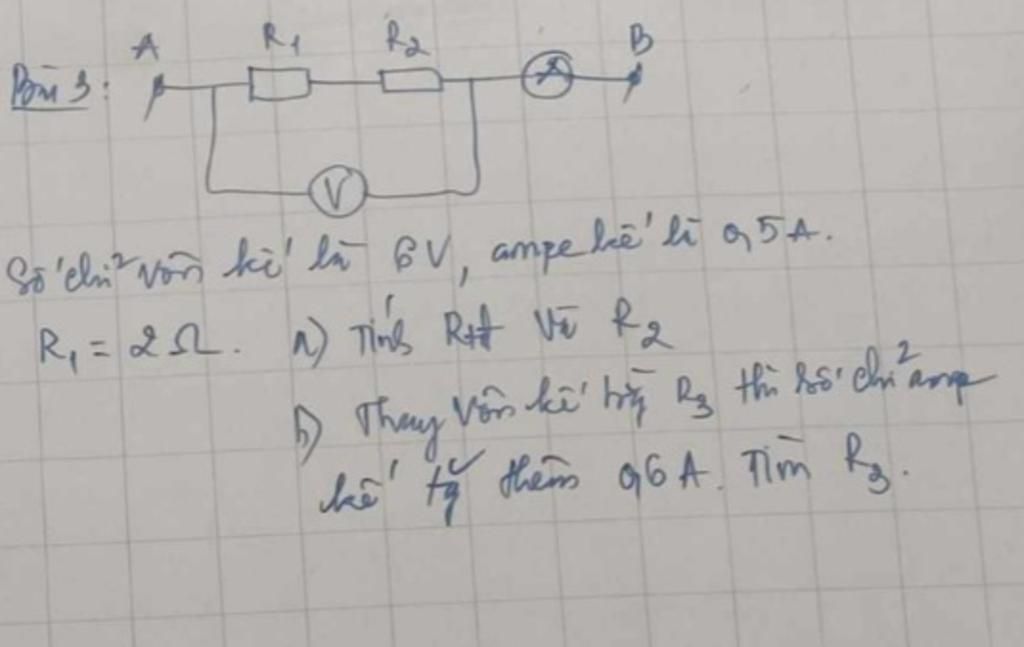 Bài 3: A R1 R2 A B
V
Số chỉ vôn kế là 6V, ampe kế là 0,5A.
R1 = 2Ω. a) Tính Rtđ và R2
b) Thay vôn kế bằng R3 thì số chỉ ampe
kế tăng thêm 0,6A. Tìm R3.